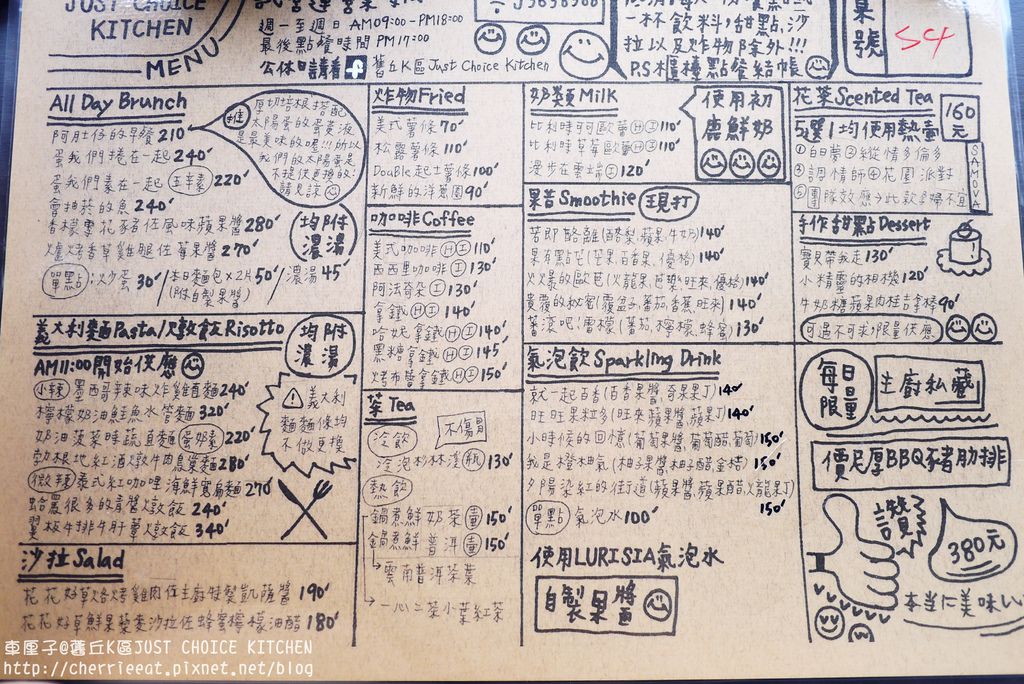 JUST CHOICE
KITCHEN
MENU
週一至週日 AM09:00-PM18:00
最後點餐時間 PM17:00
公休日請看 f 舊丘K區 Just Choice Kitchen
一杯飲料,甜點,沙
拉以及炸物除外!!!
P.S 櫃檯點餐結帳
桌號
S4
All Day Brunch
阿肚仔的早餐 210
蛋我們捲在一起 240
蛋我們素在一起 五辛素 220
會抽菸的魚 240
香檸雪花豬佐風味蘋果醬 280
爐烤香草雞腿佐莓果醬 270
單點:炒蛋 30/本日麵包x2片 50/濃湯 45
(附自製果醬)
推
厚切培根搭配
太陽蛋的蛋黃液
是最美味的喔!!!所以
我們的太陽蛋是
不提供更換的!
請見諒
均附
濃湯
義大利麵Pasta/燉飯Risotto
均附
濃湯
AM11:00開始供應
小辣 墨西哥辣味炸雞筆麵 240
檸檬奶油鮭魚水管麵 320
奶油菠菜時蔬直麵 蛋奶素 220
勃根地紅酒燉牛肉鳥巢麵 280
微辣 泰式紅咖哩海鮮寬扁麵 270
蛤蠣很多的青醬燉飯 240
翼板牛排牛肝蕈燉飯 340
義大利
麵麵條均
不做更換
沙拉Salad
花花好草烙烤雞肉佐主廚特製凱薩醬 190
花花好草鮮果藜麥沙拉佐蜂蜜檸檬油醋 180
炸物Fried
美式薯條 70
松露薯條 110
Double起士薯條 100
新鮮的洋蔥圈 90
咖啡Coffee
美式咖啡 H I 110
西西里咖啡 I 130
阿法奇朵 I 130
拿鐵 H I 140
哈妮拿鐵 H I 140
黑糖拿鐵 H I 145
烤布蕾拿鐵 H I 150
茶 Tea
冷飲
不傷胃
冷泡杉林溪 瓶 130
熱飲
鍋煮鮮奶茶 壹 150
鍋煮鮮普洱 壹 150
雲南普洱茶葉
一心二葉小葉紅茶
奶類Milk
比利時可可歐蕾 H I 110
比利時草莓歐蕾 H I 110
漫步在雲端 I 120
使用初
鹿鮮奶
果昔Smoothie 現打
苦即酪離(酪梨.蘋果.牛奶) 140
果有點花(芒果.百香果.優格) 140
火爆的歐芭(火龍果.芭樂.旺來.優格) 140
貴覆的秘密(覆盆子.蕃茄.香蕉.旺來) 140
蕃滾吧!雪檬(蕃茄.檸檬.蜂蜜) 130
氣泡飲Sparkling Drink
就一起百香(百香果醬.奇果果汁) 140
旺旺果粒多(旺來.蘋果醬.蘋果汁) 140
小時候的回憶(葡萄果醬.葡萄醋.葡萄) 150
我是橙柚氣(柚子果醬.柚子醋.金桔) 150
夕陽染紅的街道(蘋果醬.蘋果醋.火龍果汁)
150
單點 氣泡水 100
使用LURISIA氣泡水
自製果醬
花茶Scented Tea
160元
5選1均使用熱壺
①白日夢②縱情多倫多
③調情師④花園派對
⑤團隊效應→此款孕婦不宜
SAMOVA
手作甜點Dessert
寶貝帶我走 130
小精靈的相機 120
牛奶糖蘋果肉桂吉拿棒 90
可遇不可求!限量供應
每日
限量
主廚私藏
價尼厚BBQ豬肋排
讚
380元
本当に美味い
車厘子@舊丘K區JUST CHOICE KITCHEN
http://cherrieeat.pixnet.net/blog